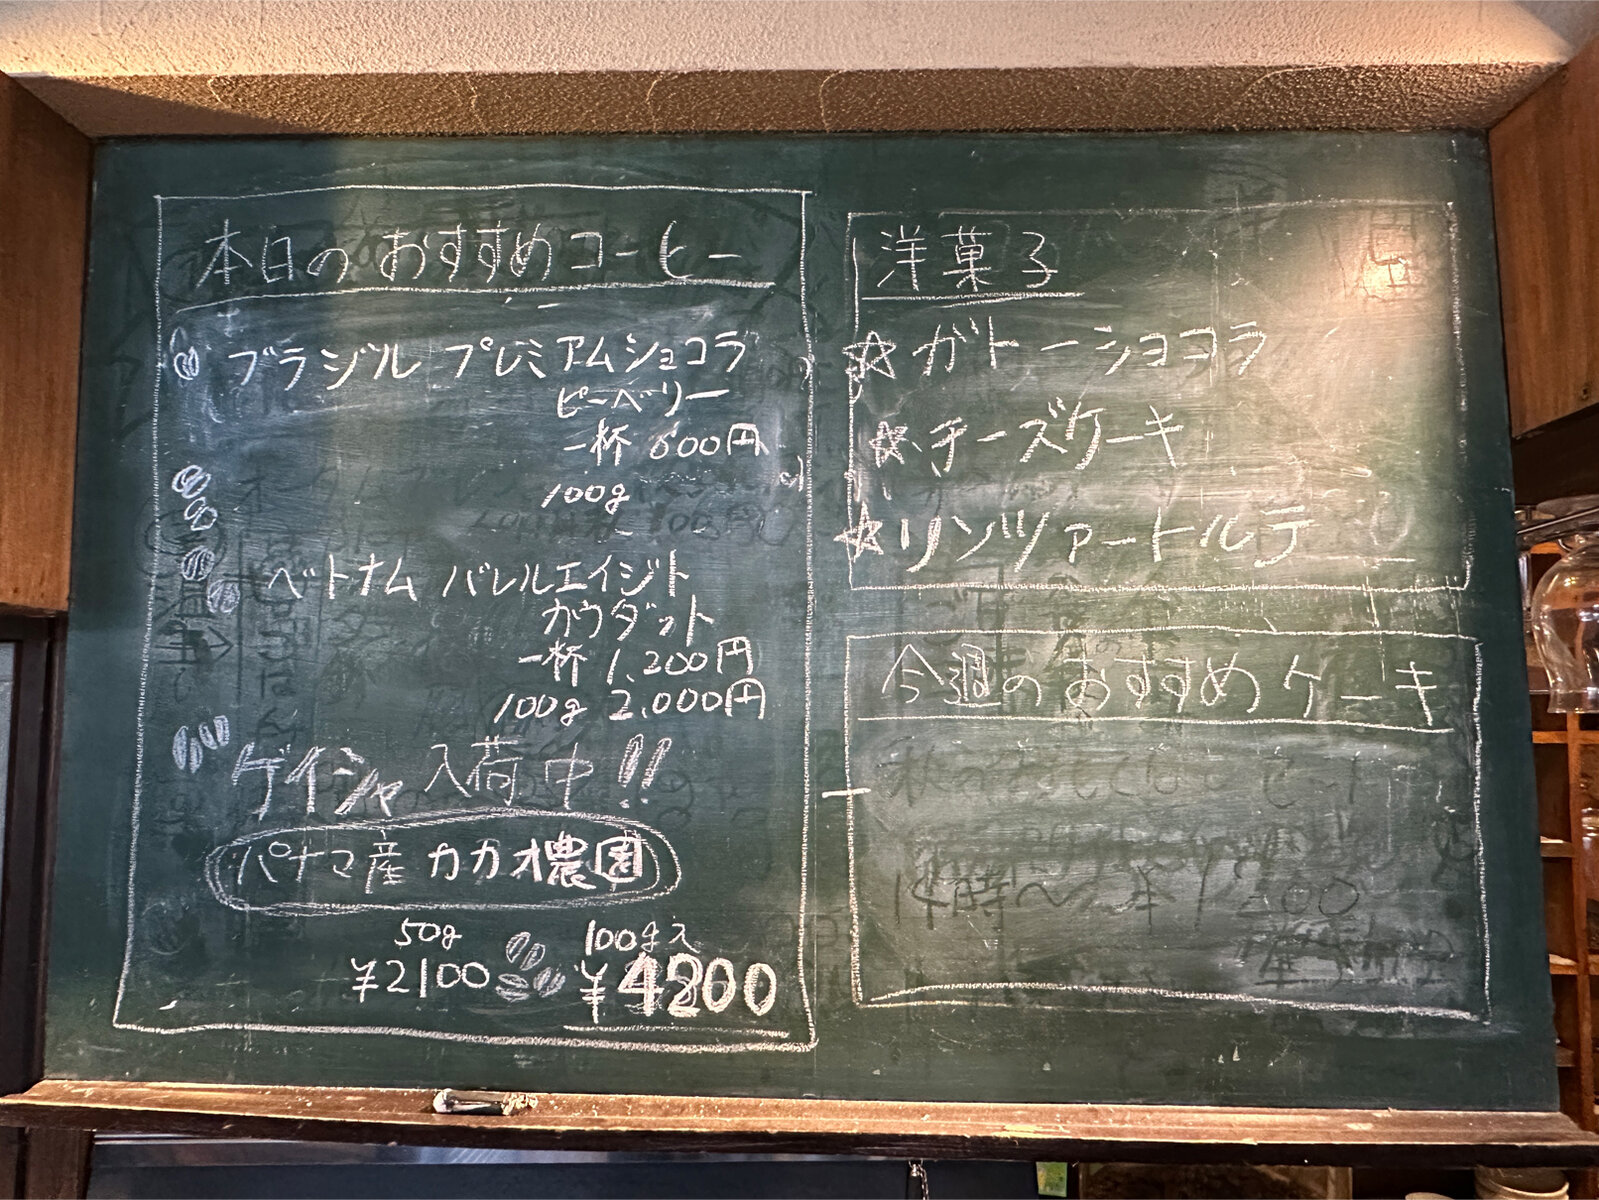 本日のおすすめコーヒー
ブラジル プレミアムショコラ
ピーベリー
一杯 600円
100g
ベトナム バレルエイジト
カウダット
一杯 1,200円
100g 2,000円
ゲイシャ 入荷中!!
パナマ産 カカオ農園
50g 100g入
¥2100 ¥4200
洋菓子
☆ガトーショコラ
☆チーズケーキ
☆リンツァートルテ
今週のおすすめケーキ